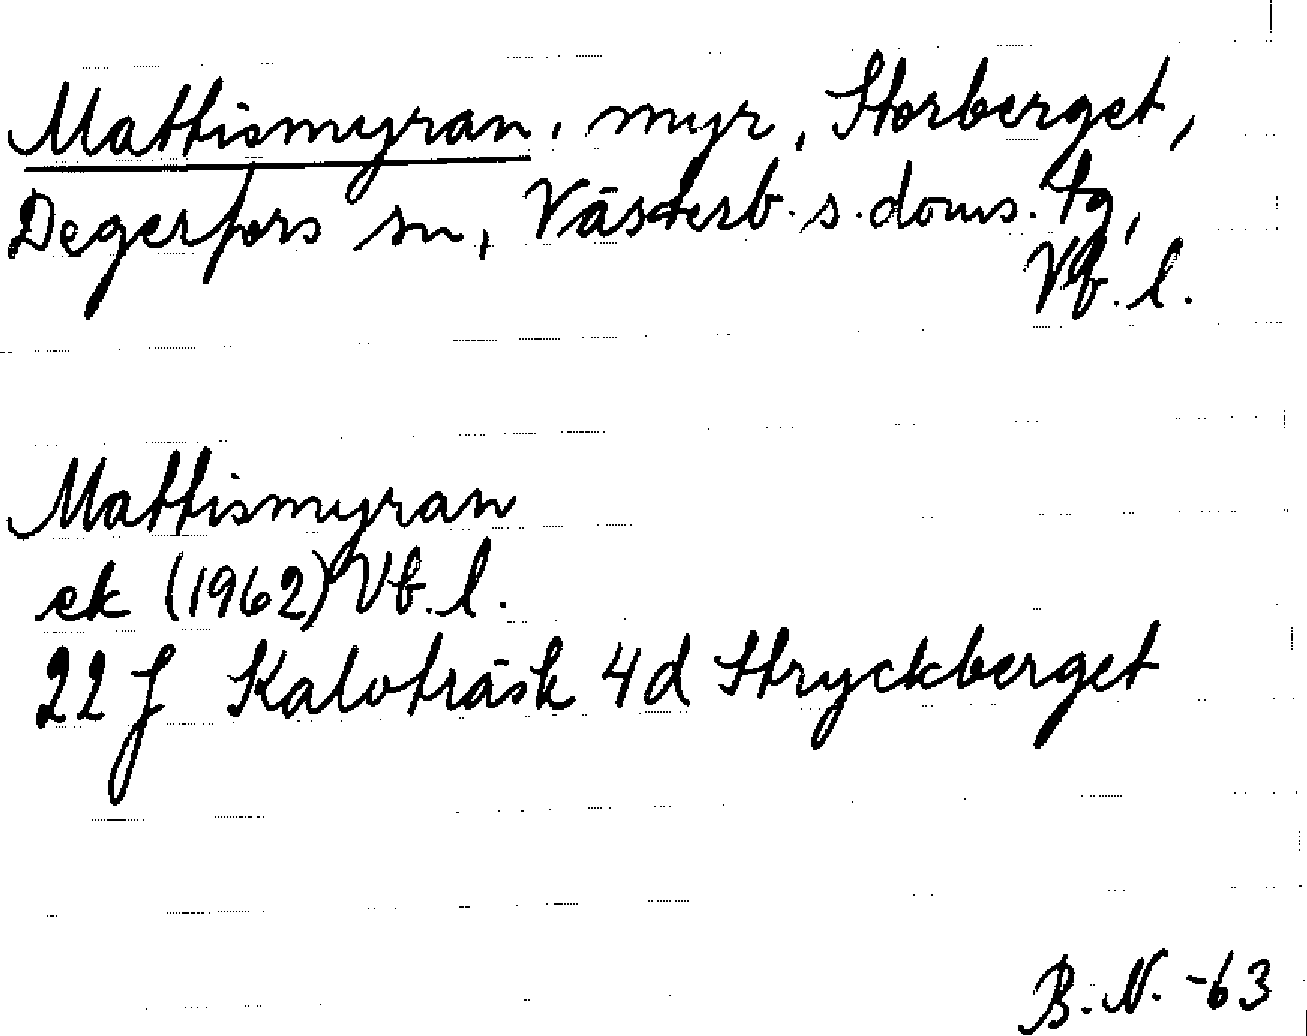 Mattismyran, myr, Storberget,
Degerfors sn, Västerb. s. doms. tg,
Vb. l.
Mattismyran
ek (1962) Vb. l.
22 J Kalvträsk 4d Stryckberget
B. N. -63